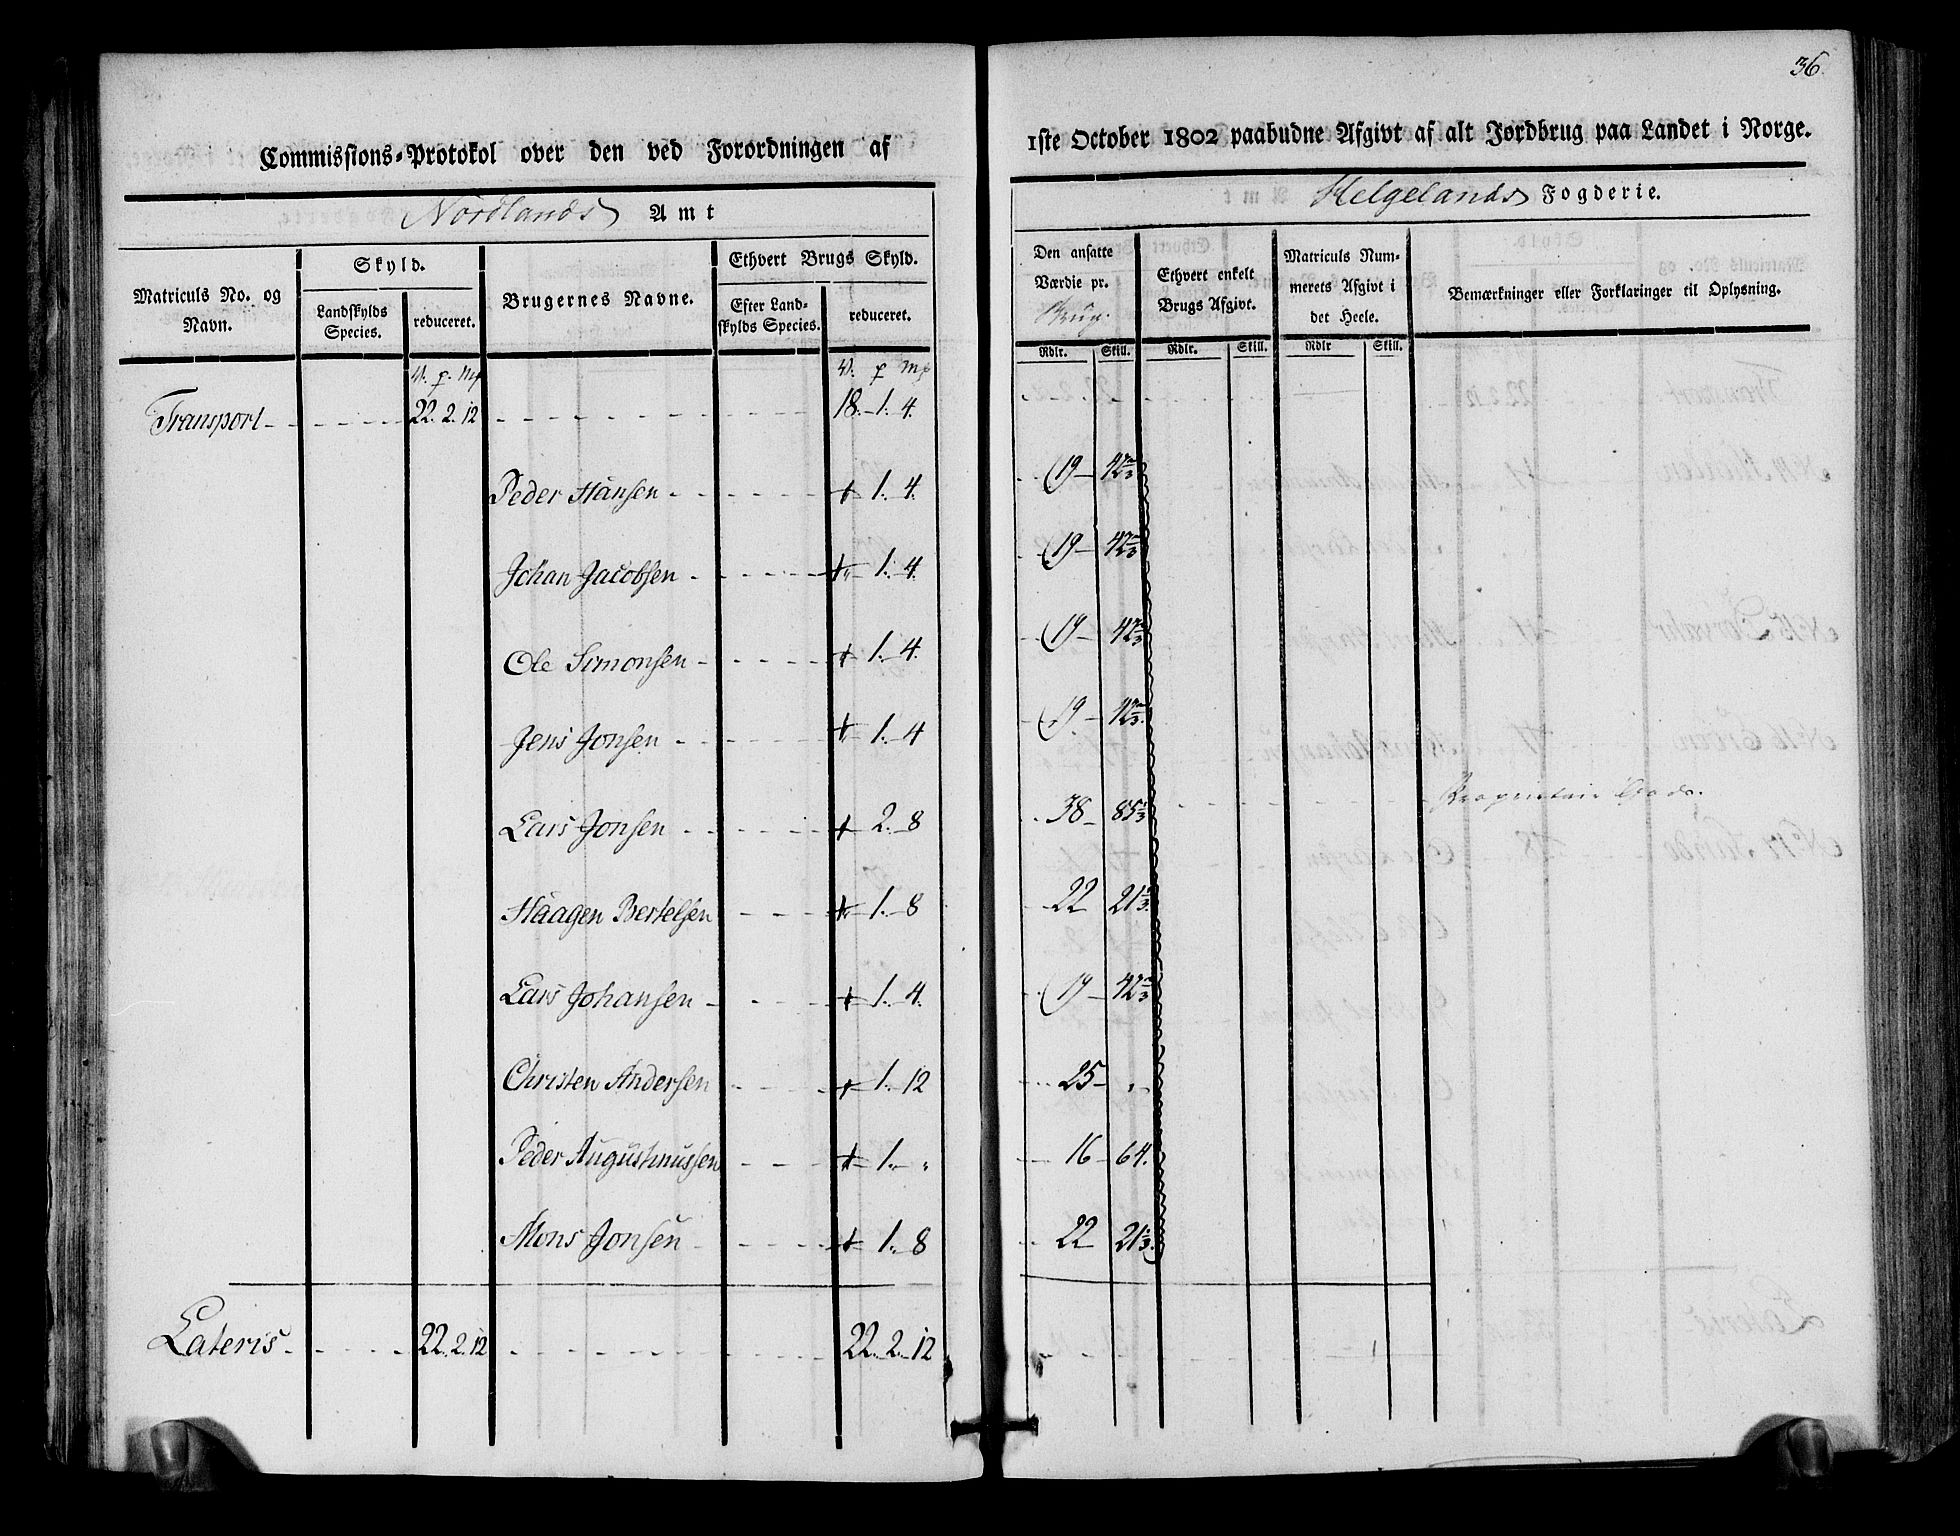 36.
Commissions-Protokol over den ved Forordningen af 1ste October 1802 paabudne Afgivt af alt Jordbrug paa Landet i Norge.
Nordlands Amt
Helgelands Fogderie.
Matriculs No. og Navn.
Skyld.
Landskylds Species.
reduceret.
Brugernes Navne.
Ethvert Brugs Skyld.
Efter Landskylds Species.
reduceret.
Den ansatte Værdie pr. Brug.
Ethvert enkelt Brugs Afgivt.
Matriculs Nummerets Afgivt i det Heele.
Bemærkninger eller Forklaringer til Oplysning.
Rdlr. Skill. Rdlr. Skill. Rdlr Skill.
V. p. Mk V. p Mk
Transport 22. 2. 12 18. 1. 4.
Peder Hansen + 1. 4. 19 42 2/3
Johan Jacobsen + 1. 4. 19 42 2/3
Ole Simonsen + 1. 4. 19 42 2/3
Jens Jonsen + 1. 4 19 42 2/3
Lars Jonsen + 2. 8 38 85 1/3 Proprietair Gods.
Haagen Bertelsen + 1. 8 22 21 1/3
Lars Johansen + 1. 4. 19 42 2/3
Christen Andersen + 1. 12 25 "
Peder Augustinussen + 1. " 16 64.
Mons Jonsen + 1. 8 22 21 1/3
Lateris 22. 2. 12 22. 2. 12